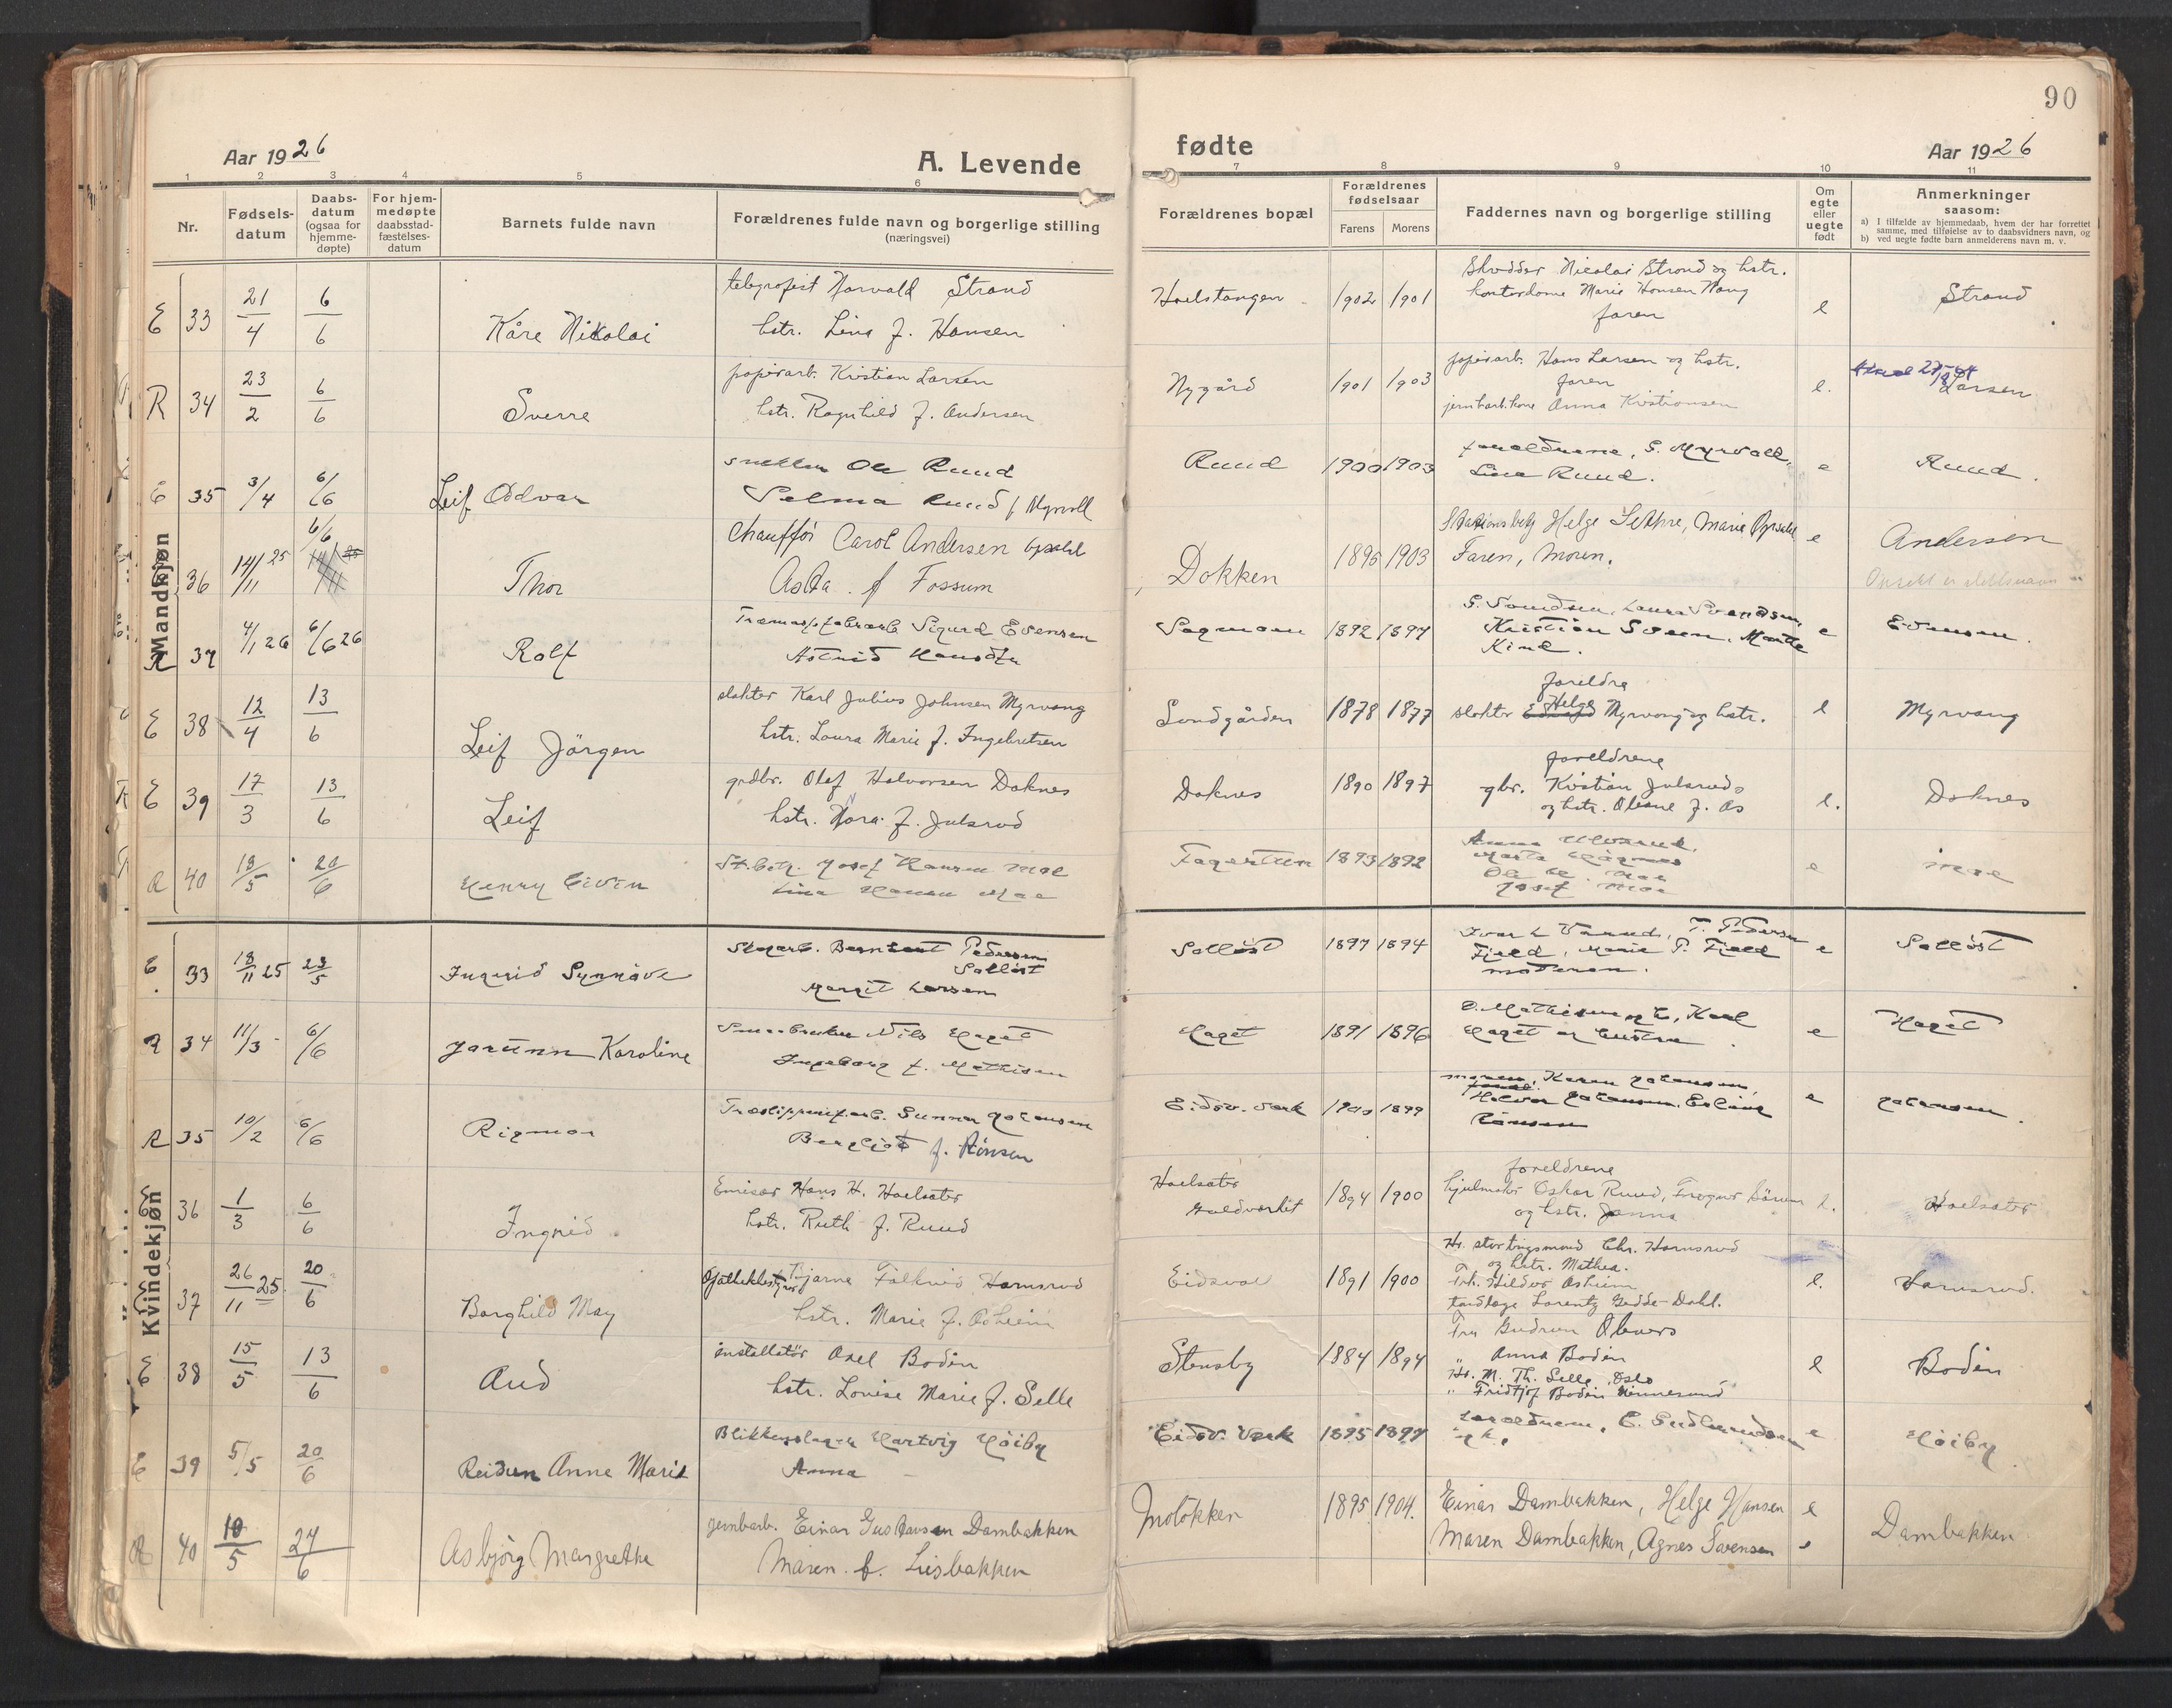 90
Aar 1926
A. Levende
fødte
Aar 1926
1 2 3 4 5 6
7 8 9 10 11
Nr.
Fødsels-
datum
Daabs-
datum
(ogsaa for
hjemme-
døpte)
For hjem-
medøpte
daabsstad-
fæstelses-
datum
Barnets fulde navn
Forældrenes fulde navn og borgerlige stilling
(næringsvei)
Forældrenes bopæl
Forældrenes
fødselsaar
Farens Morens
Faddernes navn og borgerlige stilling
Om
egte
eller
uegte
født
Anmerkninger
saasom:
a) I tilfælde av hjemmedaab, hvem der har forrettet
samme, med tilføielse av to daabsvidners navn, og
b) ved uegte fødte barn anmelderens navn m. v.
Mandkjøn
E 33 21/4 6/6 Kåre Nikolai
telegrafist Narvald Strand
hstr. Lina f. Hansen
Hoelstangen 1902 1901
Skrædder Nicolai Strand og hstr.
kontordame Marie Hansen Haug
faren
e Strand
R 34 23/2 6/6 Sverre
papirarb. Kristian Larsen
hstr. Ragnhild f. Andersen
Nygård 1901 1903
papirarb. Hans Larsen og hstr.
faren
jernbarb.kone Anna Kristiansen
e. Larsen
E 35 3/4 6/6 Leif Oddvar
snekker Ole Ruud
Selma Ruud f Myrvoll
Ruud 1900 1903
foreldrene, G. Myrvoll,
Lina Ruud.
e Ruud.
36 14/11 25 6/6 Thor
Chauffør Carol Andersen Opsahl
Asta f Fossum
Dokken 1896 1903
Stasjonsbetj Helge Sethre, Marie Opsahl
Faren, Moren.
e Andersen
R 37 4/1 26 6/6 26 Rolf
Sigurd Evensen
Astrid
Sagmoen 1892 1897
Laura Svendsen,
Kristian
e Evensen.
E 38 12/4 13/6 Leif Jörgen
slakter Karl Julius Johnsen Myrvang
hstr. Laura Marie f. Ingebretsen
Sundgården 1878 1877
foreldre
slakter Helge Myrvang og hstr.
e Myrvang
E 39 17/3 13/6 Leif
grdbr. Olaf Halvorsen Doknes
hstr. Nora f. Julsrud
Doknes 1890 1897
foreldrene
gbr. Kristian Julsrud
og hstr. Oleane f. Ås
e. Doknes
R 40 18/5 20/6 Henry Eivin
St.betj. Josef Hansen Moe
Lina Hansen Moe
1893 1892
Ole H. Moe
Josef Moe
e Moe
Kvindekjøn
E 33 18/11 25 23/5 Ingrid Synnöve
Skogarb. Berntsent Pedersen
Salløst
Margit Larsen
Salløst 1897 1894
T. Pedersen
Fjeld, Marie P. Fjeld
moderen.
e Salløst
R 34 11/3 6/6 Jorunn Karoline
Smaabruker Nils Haget
Ingeborg f. Mathisen
Haget 1891 1896
O. Mathisen og h, Karl
Haget og hustru.
e Haget
R 35 10/2 6/6 Rigmor
Træsliperiarb. Gunnar Johansen
Bergliot f. Rønsen
Eidsv. Værk 1900 1899
moren, Karen Johansen,
Halvor Johansen, Erling
Rønsen
e Johansen.
E 36 1/3 6/6 Ingrid
Emisær Hans H. Hoelsæter
hstr. Ruth f. Ruud
Hoelsæter
Guldverket 1894 1900
foreldrene
hjulmaker Oskar Ruud, Frogner Sörum
og hstr. Janna
e. Hoelsæter
37 26/11 25. 20/6 Borghild May
Apothekbestyrer Bjarne Falknes Hornsrud
hstr. Marie f. Åsheim
Eidsvoll 1891 1900
Hr. stortingsmand Chr. Hornsrud
og hstr. Mathea.
Frk. Hildur Åsheim
tandlæge Lorentz Gedde-Dahl.
e. Hornsrud.
E 38 15/5 13/6 Aud
installatør Axel Bodin
hstr. Louise Marie f. Selle
Stensby 1884 1894
Fru Gudrun Alvær
" Anna Bodin
Hr. M. Th. Selle, Oslo
" Fridtjof Bodin Minnesund
e Bodin
E 39 5/5 20/6 Reidun Anne Marie
Blikkenslager Hartvig Høiby
Anna
Eidsv. Værk 1895 1897
foreldrene, E. Gudbrandsen
og h.
e Høiby
R 40 10/5 27/6 Asbjörg Margrethe
jernbarb. Einar Gustavsen Dambakken
Maren f. Lisbakken
Moløkken 1895 1904.
Einar Dambakken, Helge Hansen
Maren Dambakken, Agnes Sørensen
e Dambakken